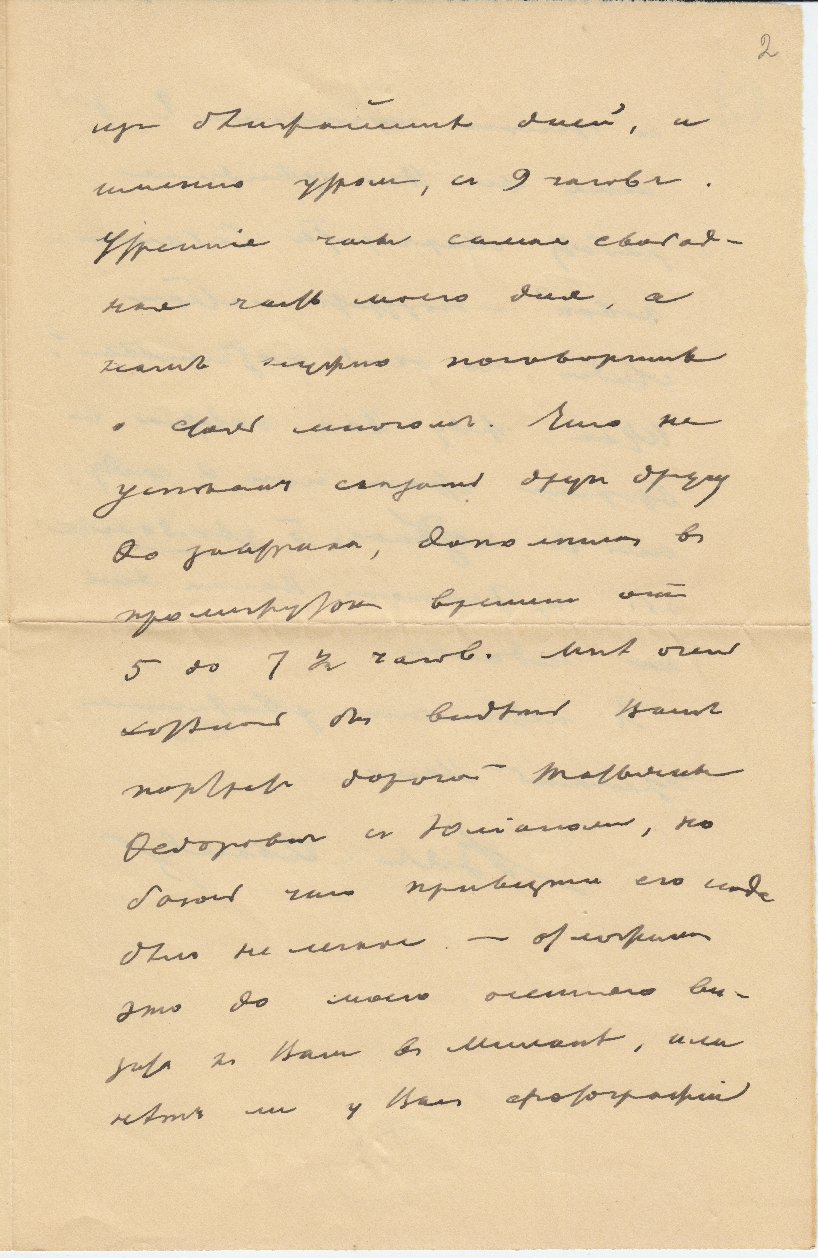 2
изъ ближайшихъ дней, и
именно утром, съ 9 часовъ.
Утренніе часы самая свобод-
ная часть моего дня, а
намъ нужно поговорить
о многомъ. Чего не
успѣемъ сказать другъ другу
до завтрака, дополнимъ въ
промежутокъ времени отъ
5 до 7 ½ часов. Мнѣ очень
хотѣлось бы видѣть Вашъ
портретъ дорогой Татьяны
Федоровны съ Юліаномъ, но
боюсь что привезти его сюда
дѣло не легкое — отложимъ
это до моего осенняго ви-
зита къ Вамъ въ Миланѣ, или
нѣтъ ли у Васъ фотографіи